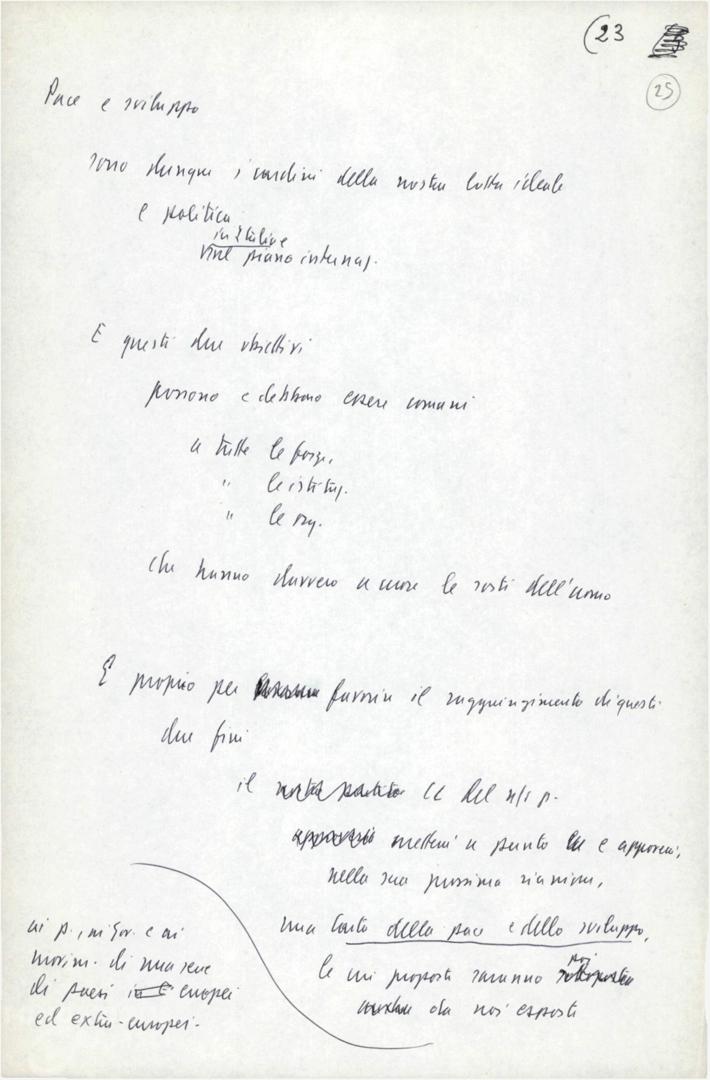 (23
25
Pace e sviluppo
sono dunque i cardini della nostra lotta ideale
e politica
in Italia e
sul piano internaz.
E questi due obiettivi
possono e debbono essere comuni
a tutte le forze,
" le istituz.
" le org.
che hanno davvero a cuore le sorti dell'uomo
E proprio per favorire il raggiungimento di questi
due fini
il nostro partito CC del n/s p.
metterà a punto e approverà,
nella sua prossima riunione,
una Carta della pace e dello sviluppo,
le cui proposte saranno poi
da noi esposte
ai p., ai gov. e ai
movim. di una serie
di paesi europei
ed extra-europei.